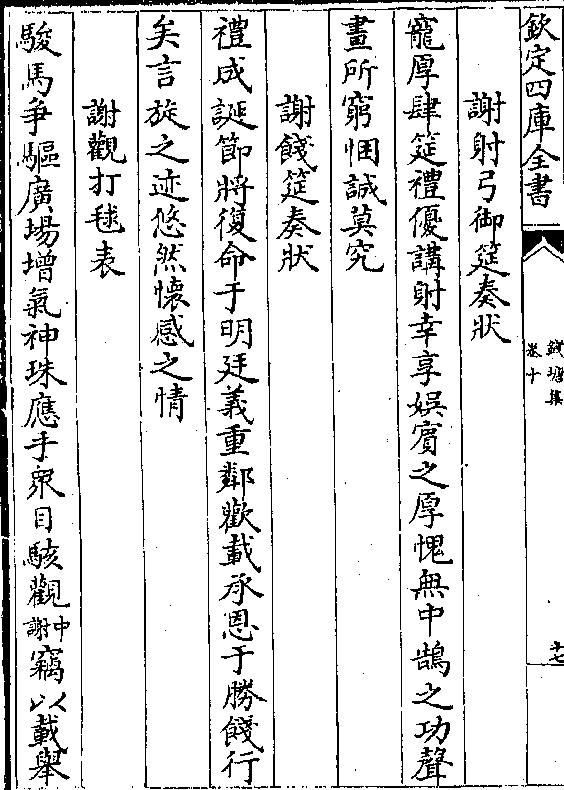 欽定四庫全書
錢塘集
卷十
十七
謝射弓御筵奏狀
寵厚肆筵禮優講射幸享娛賓之厚愧無中鵠之功聲
畫所窮悃誠莫究
謝餞筵奏狀
禮成誕節將復命于明廷義重鄰歡載承恩于勝餞行
矣言旋之迹悠然懷感之情
謝觀打毬表
駿馬爭驅廣場增氣神珠應手衆目駭觀中謝竊以載舉